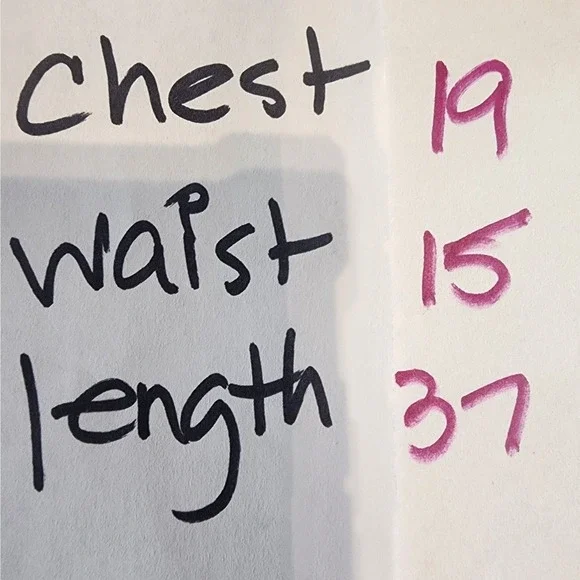 Chest 19
waist 15
length 37